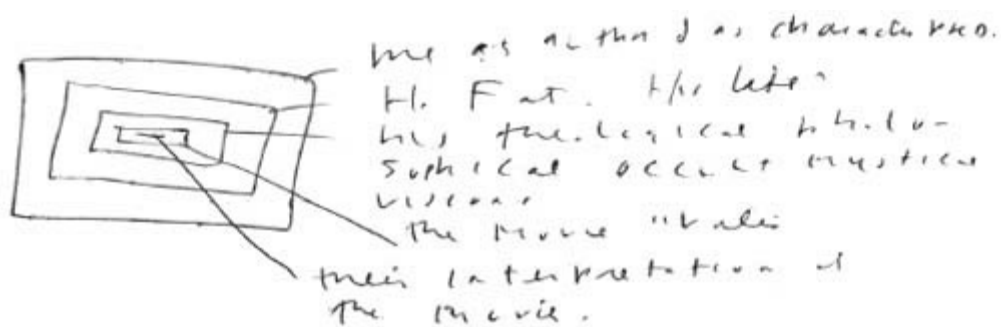 me as author & as character PKD.
H. Fat. His life
his theological philo-
sophical occult mystical
visions
the movie "Valis
their interpretation of
the movie.